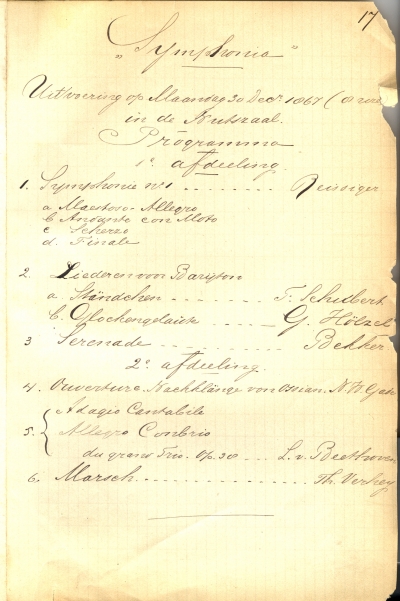 17
"Symphonia"
Uitvoering op Maandag 30 Decr 1867 (8 ure
in de Nutszaal.
Programma
1e afdeeling.
1. Symphonie no 1 ........ Reissiger
a Maestoso-Allegro
b Andante con Moto
c Scherzo
d. Finale
2. Liederen voor Bariton
a Ständchen - - - - - - - F. Schubert
b. Glockengelaüte - - - - - G. Hölzel
3 Serenade - - - - - - - - Bekker
2e afdeeling.
4. Ouverture. Nachklänge von Ossian. N.W. Gade
Adagio Cantabile
5. { Allegro Conbrio
du grand Trio. Op. 38 - - - L. v. Beethoven
6. Marsch - - - - - - - - - - - Th. Verhey